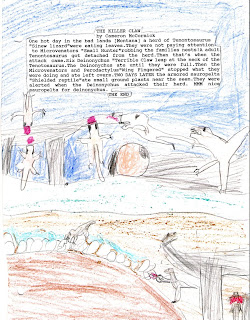 THE KILLER CLAW
by Cameron McCormick
One hot day in the bad lands (Montana) a herd of Tenontosaurus
"Sinew lizard"were eating leaves.They were not paying attention
to Microvenators "Small Hunter"robbing the families nests.A adult
Tenontosaurus got detached from the herd.Then that's when the
attack came.Six Deinonychus "Terrible Claw leap at the neck of the
Tenotosaurus.The Deinonychus ate until they were full.Then the
Microvenators and Pterodactylus"Wing Fingered" stopped what they
were doing and ate left overs.TWO DAYS LATER the armored sauropelta
"Shielded reptile"ate small ground plants near the seen.They were
alerted when the Deinonychus attacked their herd. MMM nice
sauropelta for deinonychus.
(THE END)